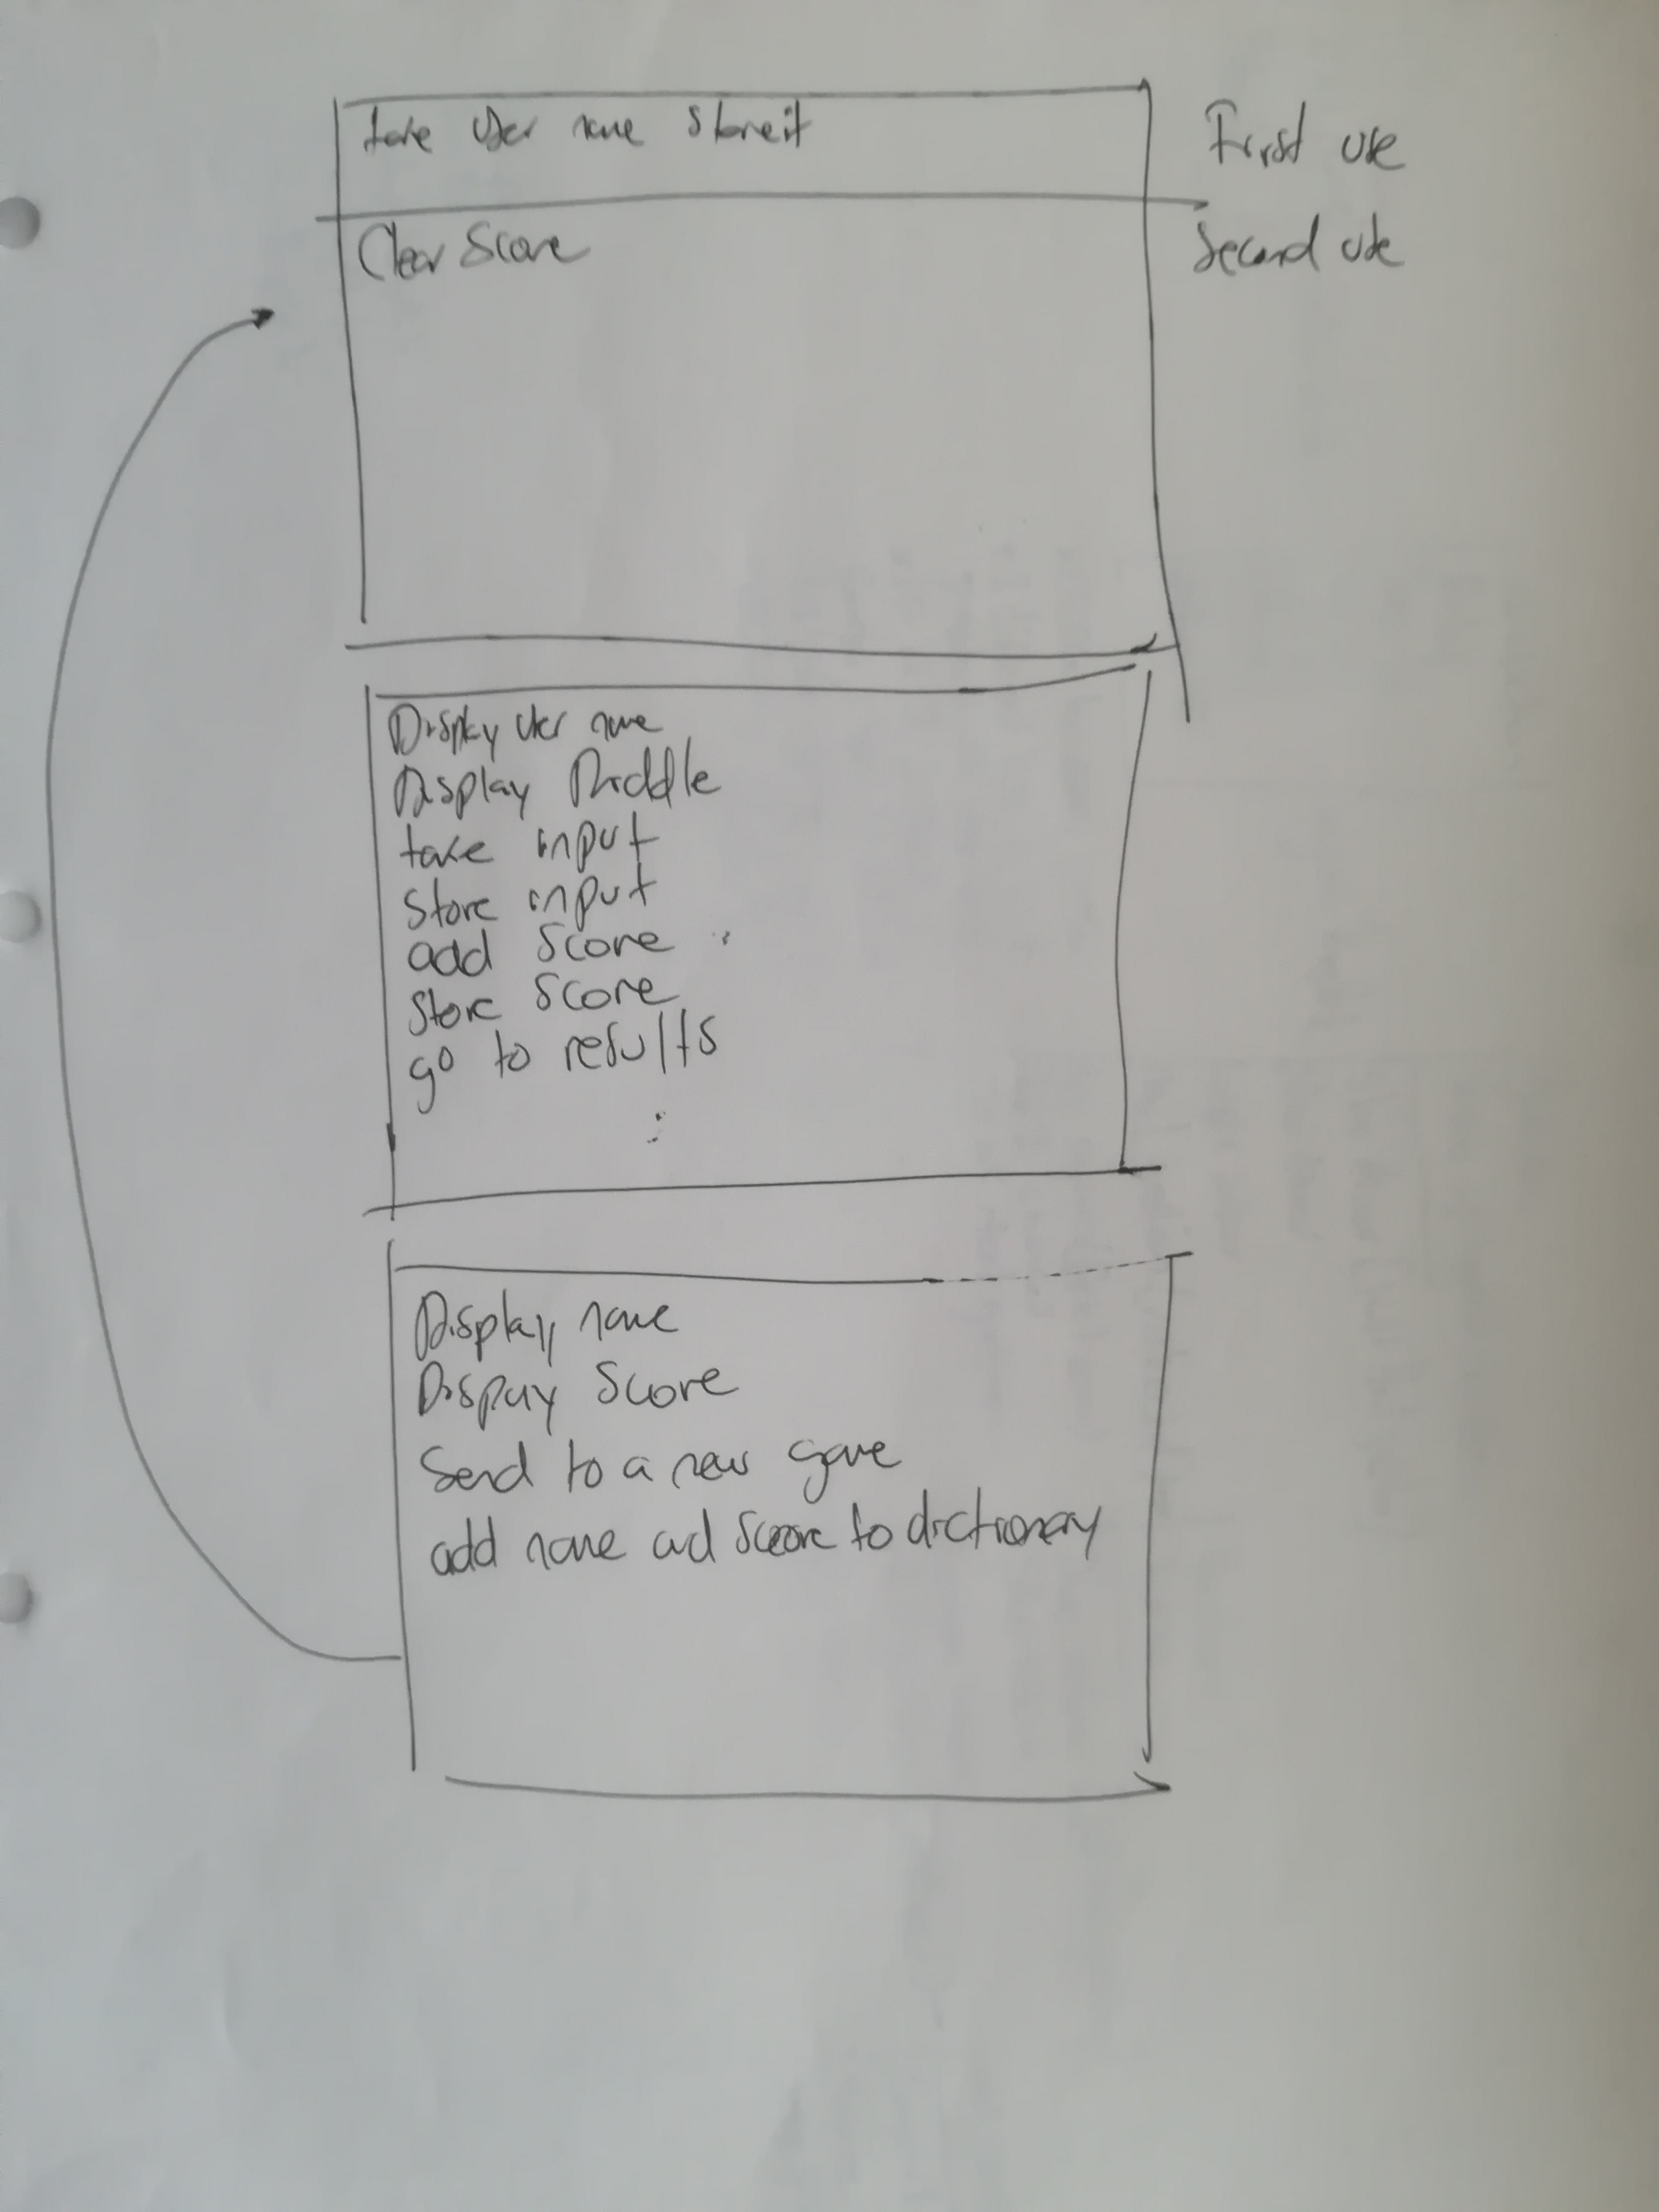 take user name store it
First use
Clear Score
Second use
Display user name
Display Riddle
take input
store input
add score
store score
go to results
Display name
Display Score
Send to a new game
add name and score to dictionary